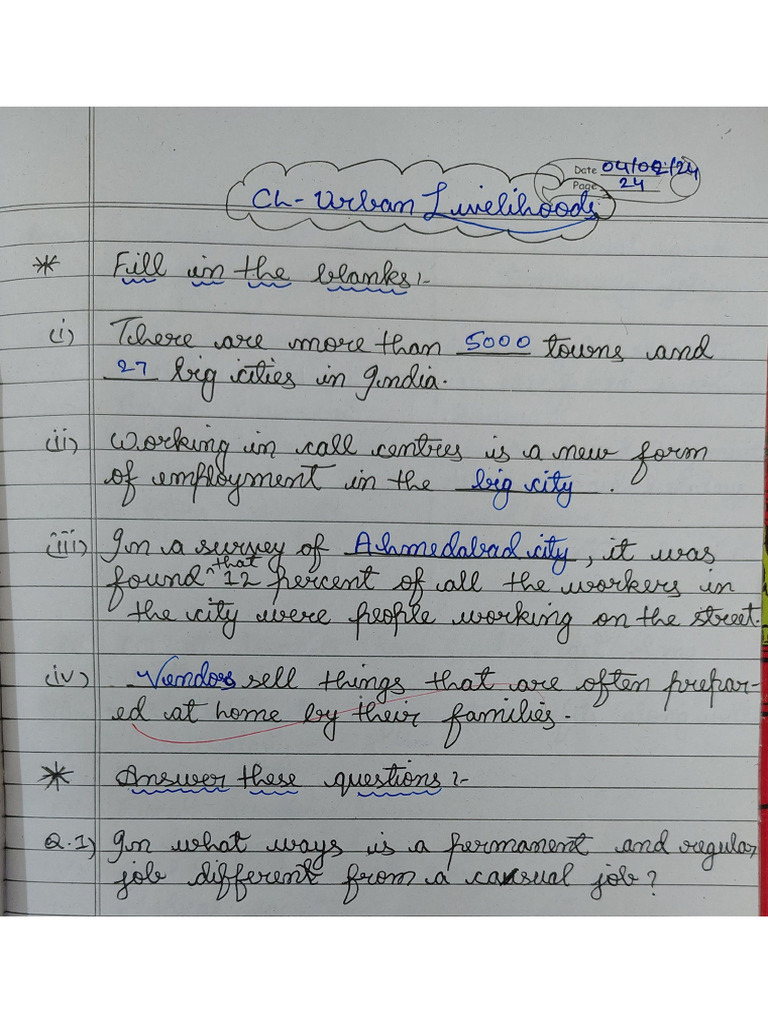 Date 04/02/24
Page 24
Ch- Urban Livelihoods
* Fill in the blanks:-
(i) There are more than 5000 towns and
27 big cities in India.
(ii) Working in call centres is a new form
of employment in the big city.
(iii) In a survey of Ahmedabad city, it was
found that 12 percent of all the workers in
the city were people working on the street.
(iv) Vendors sell things that are often prepar-
ed at home by their families.
* Answer these questions:-
Q.1) In what ways is a permanent and regular
job different from a casual job?